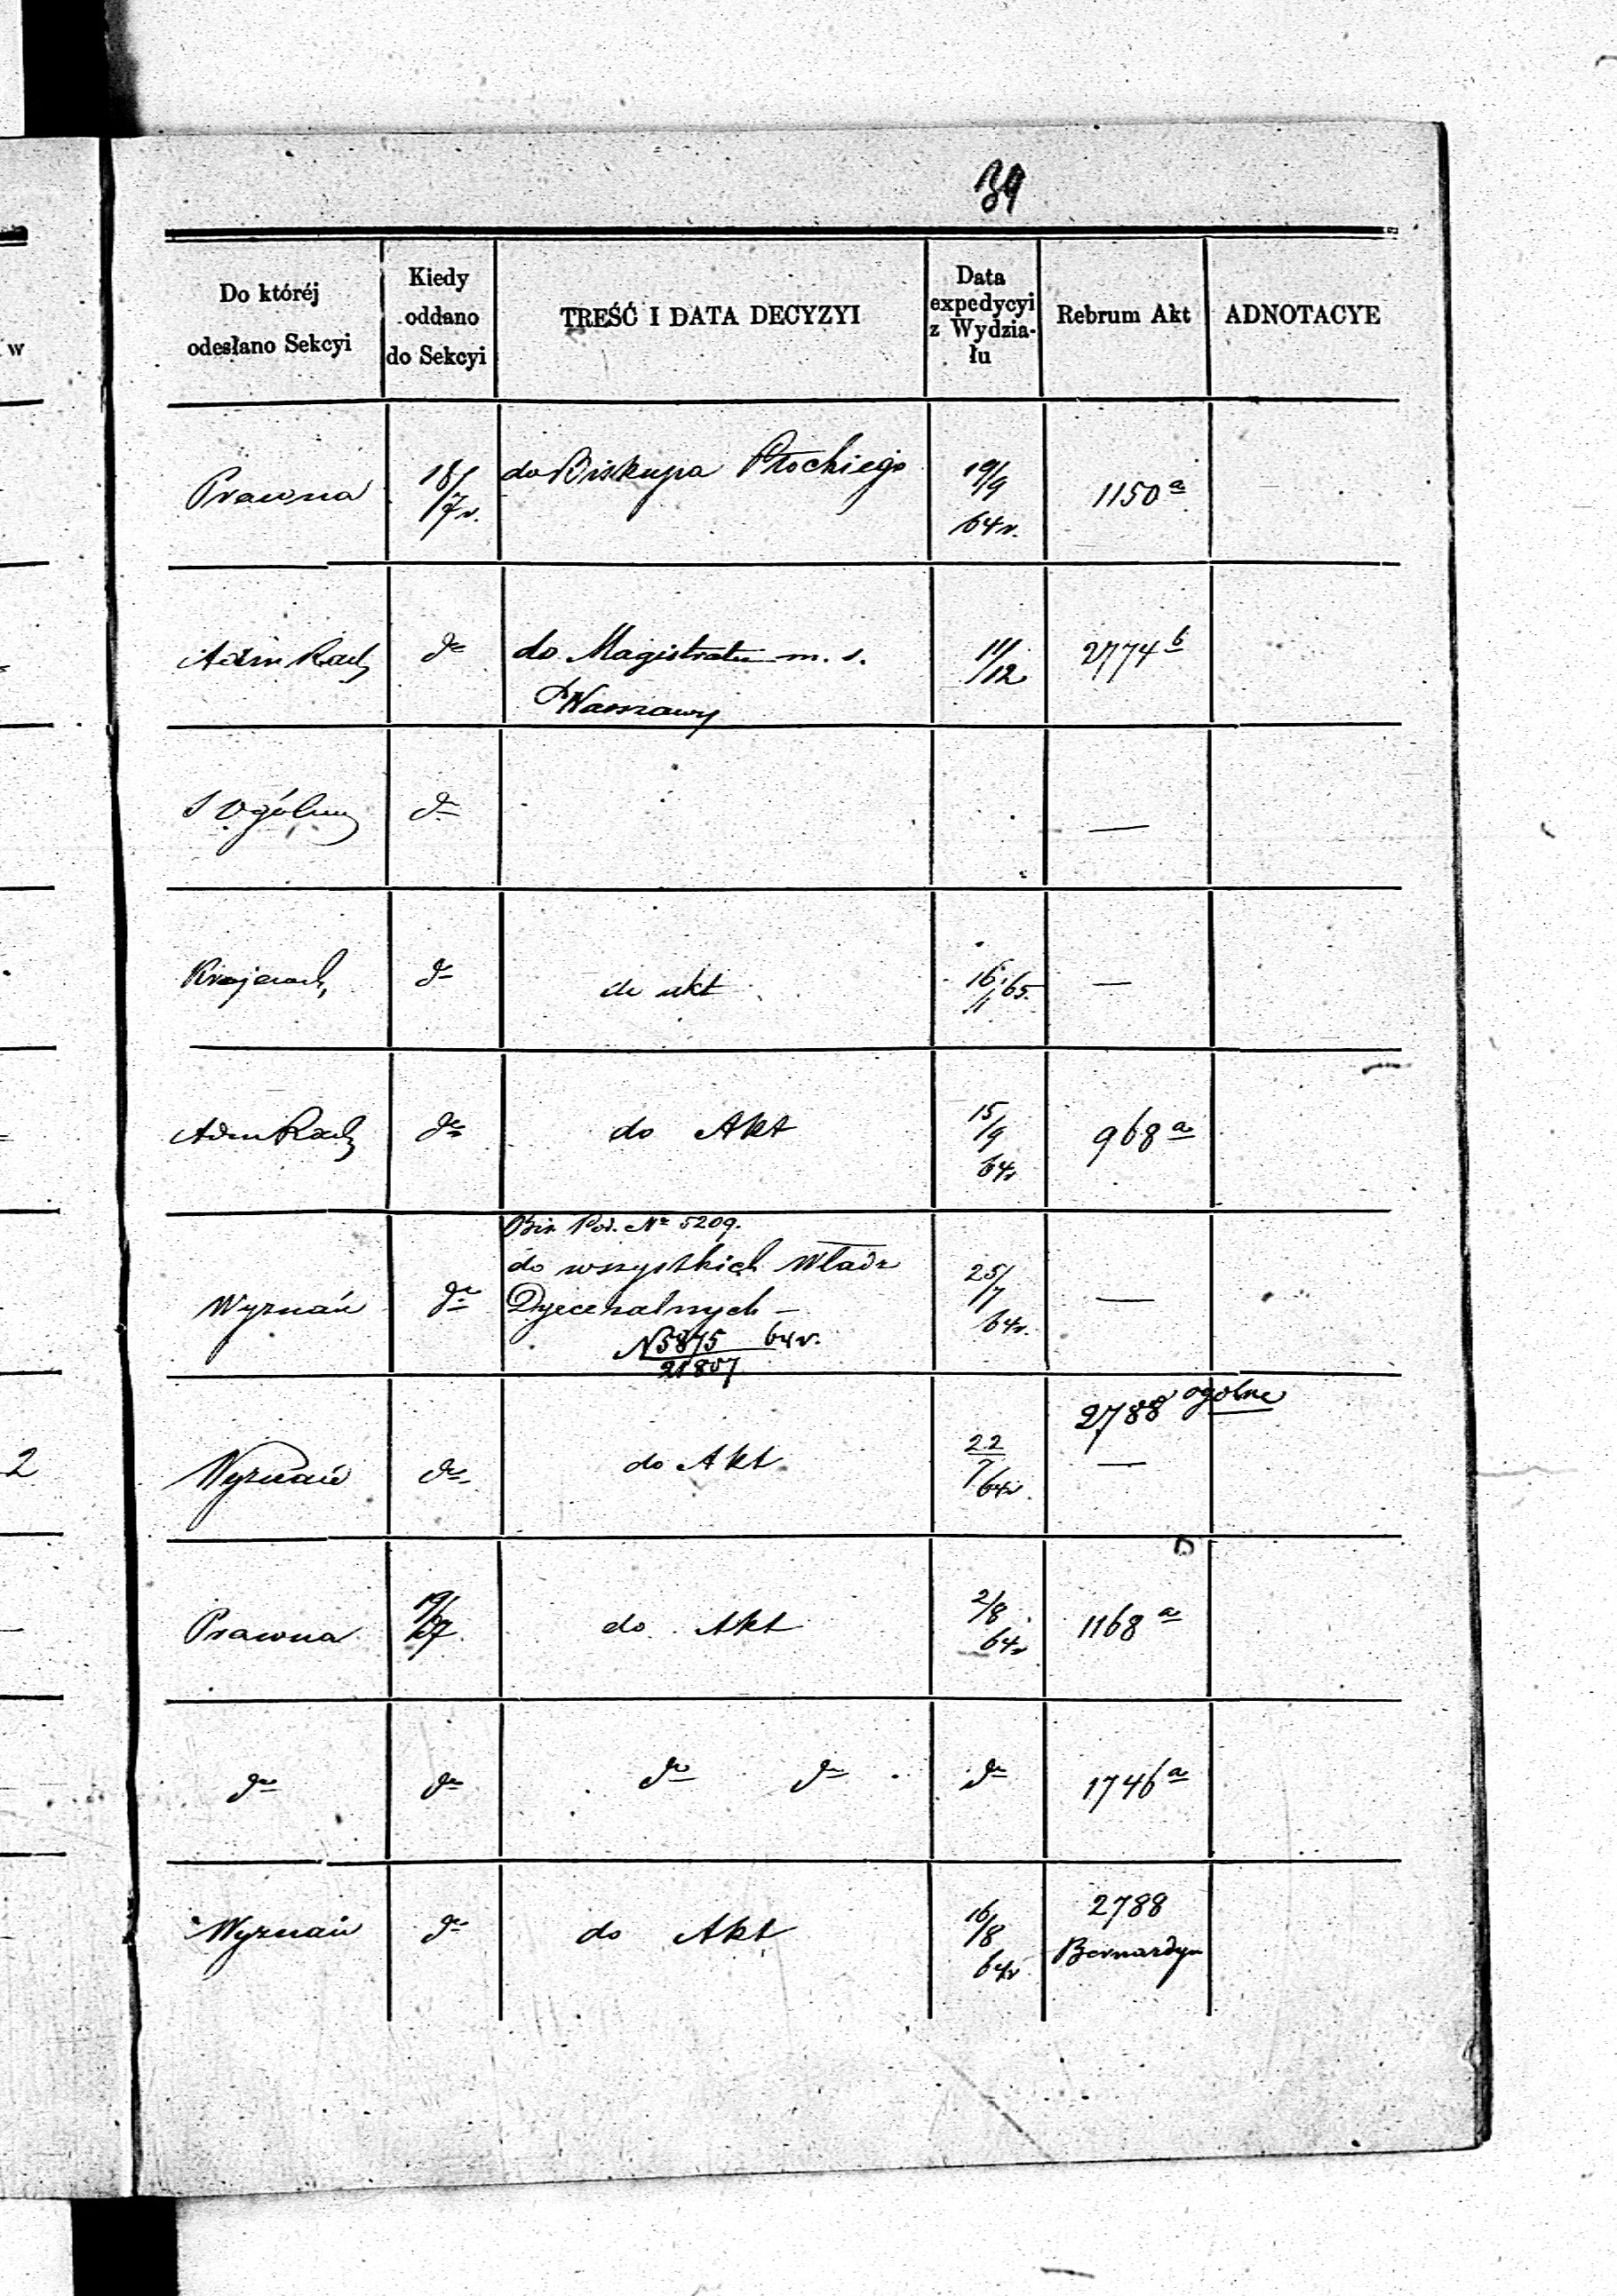 39
w
Do któréj
odesłano Sekcyi
Kiedy
oddano
do Sekcyi
TREŚĆ I DATA DECYZYI
Data
expedycyi
z Wydzia-
łu
Rebrum Akt
ADNOTACYE
Prawna
18/
/7 r.
do Biskupa Płockiego
19/
/9
64 r.
1150 a
do
do Magistratu m. s.
Warszawy
11/
/12
2774 b
S Ogólny
do
—
do
do akt
16/
/1 65.
—
do
do Akt
15/
/9
64 r
968 a
Wyznań
do
No 5209.
do wszystkich Władz
Dyecezalnych —
N 5875 64 r.
21807
25/
/7
64 r.
—
Wyznań
do
do Akt
22
7 64 r
2788 ogolne
—
Prawna
19/
/7
do Akt
2/8
64 r
1168 a
do
do
do do
do
1746 a
Wyznań
do
do Akt
16/
/8
64 r
2788
Bernardyn
2